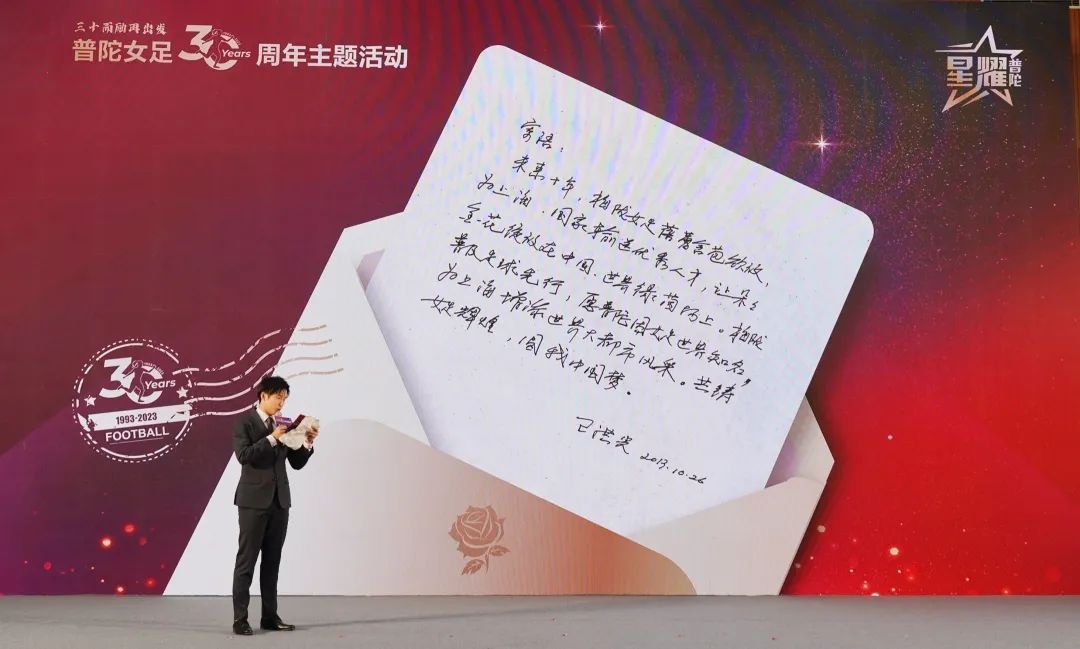 三十而励再出发
普陀女足 30 Years 周年主题活动
星耀普陀
寄语：
未来十年，梅陇女足蓓蕾含苞欲放，
为上海、国家输送优秀人才，让朵朵
金花绽放在中国、世界绿茵场上。梅陇
普及足球先行，愿普陀因女足世界知名
为上海增添世界大都市风采。共铸
女足辉煌，圆我中国梦。
2013.10.26
30 Years
1993-2023
FOOTBALL